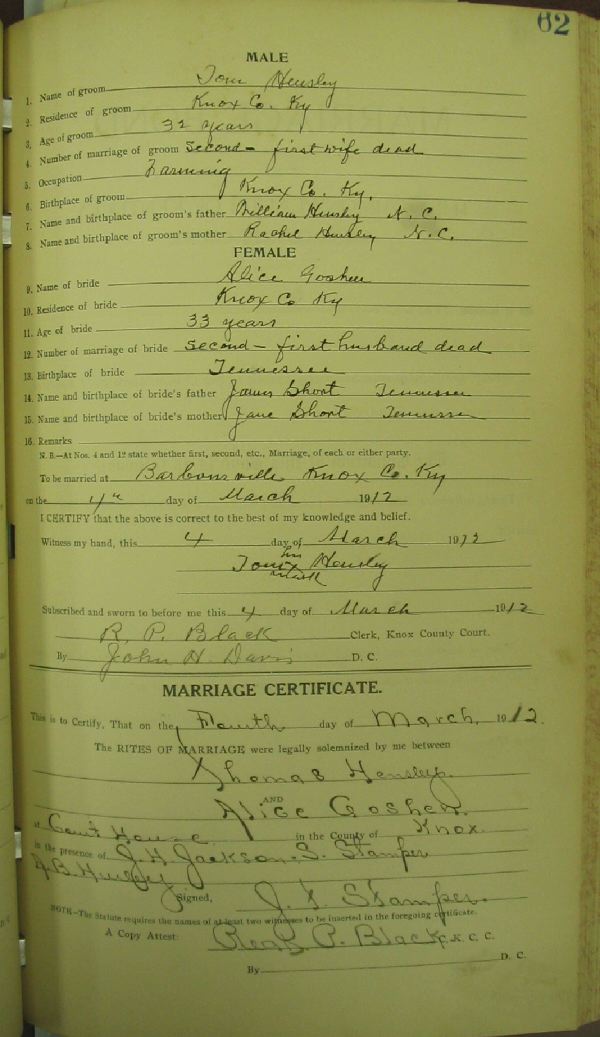 62
MALE
1. Name of groom Tom Hensley
2. Residence of groom Knox Co. Ky
3. Age of groom 32 years
4. Number of marriage of groom Second - first wife dead
5. Occupation Farming
6. Birthplace of groom Knox Co. Ky.
7. Name and birthplace of groom's father William Hensley N. C.
8. Name and birthplace of groom's mother Rachel Hensley N. C.
FEMALE
9. Name of bride Alice Goshen
10. Residence of bride Knox Co Ky
11. Age of bride 33 years
12. Number of marriage of bride Second - first husband dead
13. Birthplace of bride Tennessee
14. Name and birthplace of bride's father James Short Tennessee
15. Name and birthplace of bride's mother Jane Short Tennessee
16. Remarks
N. B.—At Nos. 4 and 12 state whether first, second, etc., Marriage, of each or either party.
To be married at Barbourville Knox Co. Ky
on the 4th day of March 1912
I CERTIFY that the above is correct to the best of my knowledge and belief.
Witness my hand, this 4 day of March 1912
his
Tom x Hensley
mark
Subscribed and sworn to before me this 4 day of March 1912
R. P. Black Clerk, Knox County Court.
By John H. Davis D. C.
MARRIAGE CERTIFICATE.
This is to Certify, That on the Fourth day of March, 1912.
The RITES OF MARRIAGE were legally solemnized by me between
Thomas Hensley.
AND
Alice Goshen.
at Court House in the County of Knox.
in the presence of J. H. Jackson. S. Stamper
Signed, J. F. Stamper.
NOTE—The Statute requires the names of at least two witnesses to be inserted in the foregoing certificate.
A Copy Attest: P. Black C. K. C. C.
By D. C.